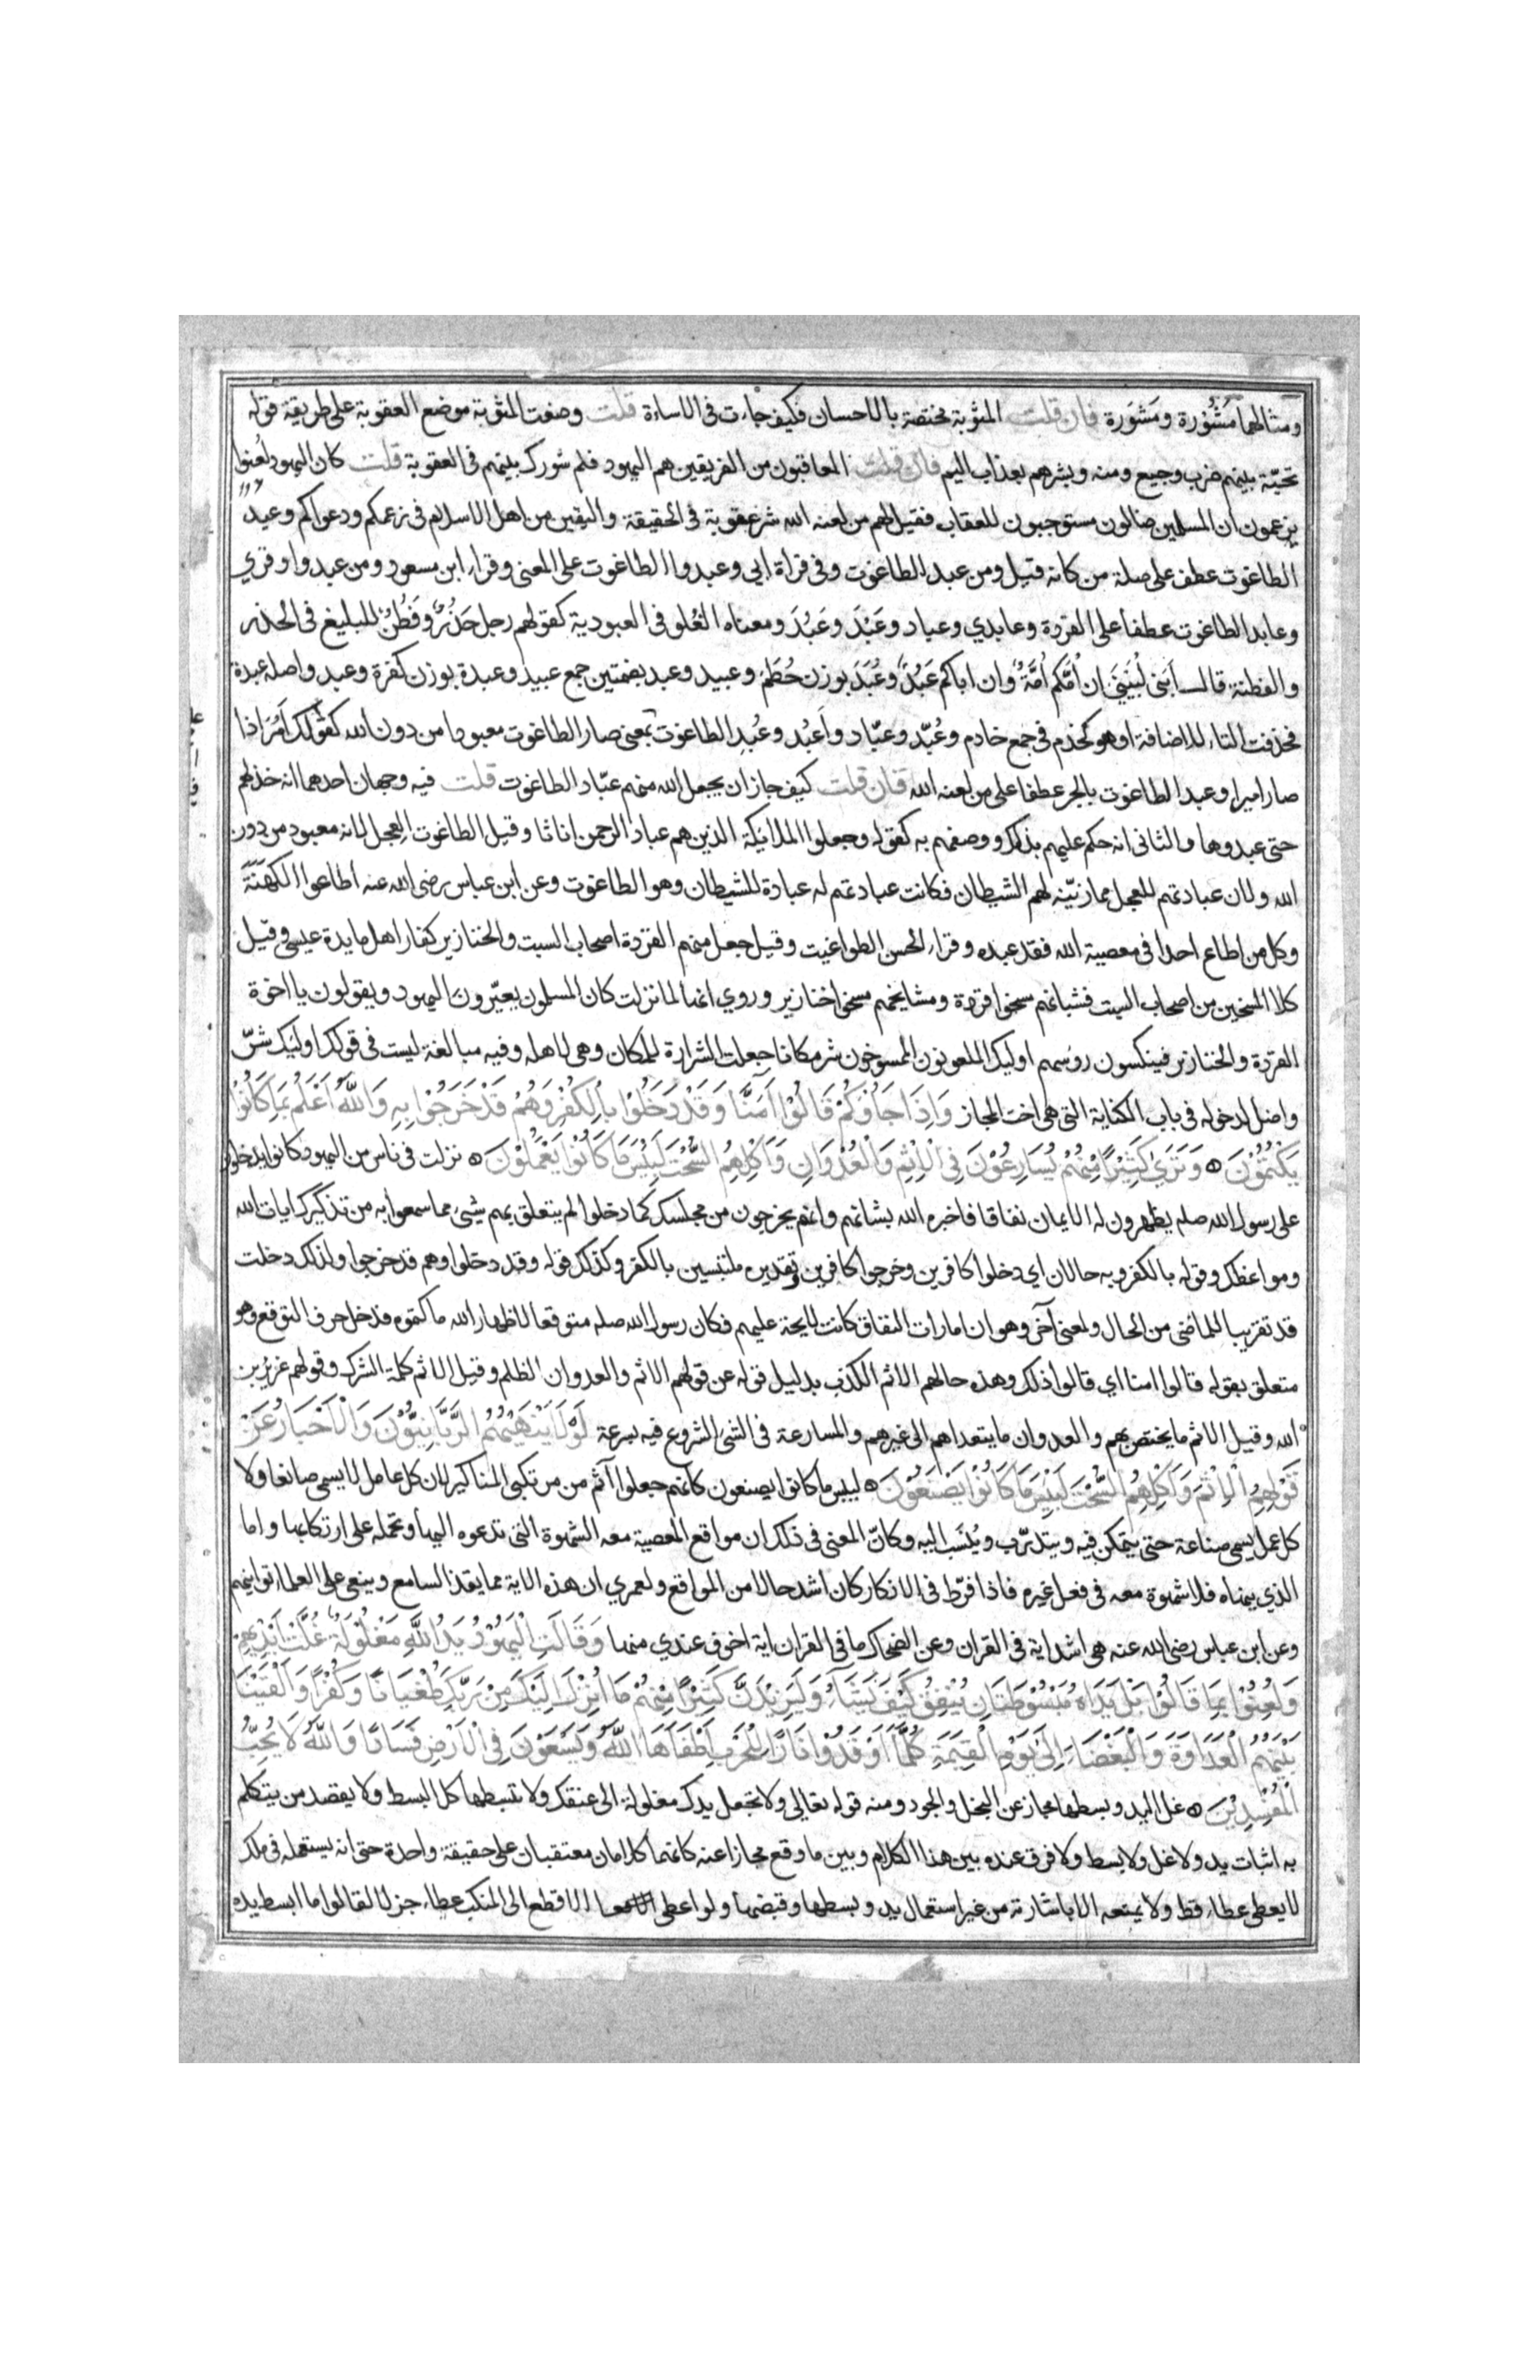 ومثالهما مَشُوْرة ومَشوَرة فان قلت المثوبة مختصة بالاحسان فكيف جاءت في الاساءة قلت وضعت المثوبة موضع العقوبة على طريقة قوله
تحيّة بينهم ضرب وجيع ومنه وبشرهم بعذاب اليم فان قلت المعاقبون من الفريقين هم اليهود فلم شورك بينهم في العقوبة قلت كان اليهود لُعنوا
يزعمون ان المسلمين ضالون مستوجبون للعقاب فقيل لهم من لعنه الله شر عقوبة في الحقيقة واليقين من اهل الاسلام في زعمكم ودعواكم وعبد
الطاغوت عطف على صلة من كانه قيل ومن عبد الطاغوت وفي قراة ابي وعبدوا الطاغوت على المعنى وقراء ابن مسعود ومن عبدوا وقري
وعابد الطاغوت عطفا على القردة وعابدي وعباد وعَبْدَ وعَبُدَ ومعناه الغُلو في العبودية كقولهم رجل حَذُرٌ وفَطُنٌ للبليغ في الحذر
والفطنة قال أبني لُبَيْنَى ان اُمَّكم اُمَةٌ وان اباكم عَبُدٌ وعُبَدَ بوزن حُطَم وعبيد وعبد بضمتين جمع عبيد وعبدة بوزن كفرة وعبد واصله عبدة
فحذفت التاء للاضافة او هو كخدم في جمع خادم وعُبّد وعبّاد واَعبُد وعُبِد الطاغوت بمعنى صار الطاغوت معبودا من دون الله كقولك اَمُرَ اذا
صار اميرا وعبد الطاغوت بالجر عطفا على من لعنه الله فان قلت كيف جاز ان يجعل الله منهم عبّاد الطاغوت قلت فيه وجهان احدهما انه خذلهم
حتى عبدوها والثانى انه حكم عليهم بذلك ووصفهم به كقوله وجعلوا الملائكة الذين هم عباد الرحمن اناثا وقيل الطاغوت العجل لانه معبود من دون
الله ولان عبادتهم للعجل مما زيّنه لهم الشيطان فكانت عبادتهم له عبادة للشيطان وهو الطاغوت وعن ابن عباس رضى الله عنه أطاعوا الكهنَةَ
وكل من اطاع احدا في معصية الله فقد عبده وقراء الحسن الطواغيت وقيل جعل منهم القردة اصحاب السبت والخنازير كفار اهل مايدة عيسى وقيل
كلا المسخين من اصحاب السبت فشبانهم مسخوا قردة ومشايخهم مسخوا خنازير وروي انها لما نزلت كان المسلمون يعيّرون اليهود ويقولون يا اخوة
القردة والخنازير فينكسون روسهم اوليك الملعونون الممسوخون شر مكانا جعلت الشرارة للمكان وهى لاهله وفيه مبالغة ليست في قولك اوليك شرّ
واضل لدخوله في باب الكناية التي هى اخت المجاز وَاِذَا جَاؤُكُمْ قَالُوْا آمَنَّا وَقَدْ دَخَلُوْا بِالْكُفْرِ وَهُمْ قَدْ خَرَجُوْا بِهِ وَاللّٰهُ اَعْلَمُ بِمَا كَانُوْا
يَكْتُمُوْنَ وَتَرَىٰ كَثِيْرًا مِنْهُمْ يُسَارِعُوْنَ فِي الْاِثْمِ وَالْعُدْوَانِ وَاَكْلِهِمُ السُّحْتَ لَبِئْسَ مَا كَانُوْا يَعْمَلُوْنَ نزلت في ناس من اليهود كانوا يدخلون
على رسول الله صلم يظهرون له الايمان نفاقا فاخبره الله بشانهم وانهم يخرجون من مجلسك كما دخلوا لم يتعلق بهم شيئ مما سمعوا به من تذكيرك ايات الله
ومواعظك وقوله بالكفر وبه حالان اي دخلوا كافرين وخرجوا كافرين وتقديره ملتبسين بالكفر وكذلك قوله وقد دخلوا وهم قد خرجوا ولذلك دخلت
قد تقريبا للماضى من الحال ولمعنى آخر وهو ان امارات النفاق كانت لايحة عليهم فكان رسول الله صلم متوقعا لاظهار الله ما كتموه فدخل حرف التوقع وهو
متعلق بقوله قالوا امنا اي قالوا ذلك وهذه حالهم الاثم الكذب بدليل قوله عن قولهم الاثم والعدوان الظلم وقيل الاثم كلمة الشرك وقولهم عزير بن
الله وقيل الاثم ما يختص بهم والعدوان ما يتعداهم الى غيرهم والمسارعة في الشئ الشروع فيه بسرعة لَوْلَا يَنْهٰيهُمُ الرَّبَّانِيُّوْنَ وَالْاَحْبَارُ عَنْ
قَوْلِهِمُ الْاِثْمَ وَاَكْلِهِمُ السُّحْتَ لَبِئْسَ مَا كَانُوْا يَصْنَعُوْنَ لبيس ما كانوا يصنعون كانهم جعلوا آثم من مرتكبي المناكير لان كل عامل لا يسمى صانعا ولا
كل عمل يسمى صناعة حتى يتمكن فيه ويتدرّب ويُنسَب اليه وكانّ المعنى في ذلك ان مواقع المعصية معه الشهوة التى تدعوه اليها وتحمله على ارتكابها واما
الذي ينهاه فلا شهوة معه في فعل غيره فاذا فرّط في الانكار كان اشد حالا من المواقع ولعمري ان هذه الاية مما يقذ السامع وينعى على العلماء توانيهم
وعن ابن عباس رضى الله عنه هى اشد اية في القران وعن الضحاك ما في القران اية اخوف عندي منها وَقَالَتِ الْيَهُوْدُ يَدُ اللّٰهِ مَغْلُوْلَةٌ غُلَّتْ اَيْدِيْهِمْ
وَلُعِنُوْا بِمَا قَالُوْا بَلْ يَدَاهُ مَبْسُوْطَتَانِ يُنْفِقُ كَيْفَ يَشَآءُ وَلَيَزِيْدَنَّ كَثِيْرًا مِنْهُمْ مَا اُنْزِلَ اِلَيْكَ مِنْ رَبِّكَ طُغْيَانًا وَكُفْرًا وَاَلْقَيْنَا
بَيْنَهُمُ الْعَدَاوَةَ وَالْبَغْضَاءَ اِلَىٰ يَوْمِ الْقِيٰمَةِ كُلَّمَا اَوْقَدُوْا نَارًا لِلْحَرْبِ اَطْفَاَهَا اللّٰهُ وَيَسْعَوْنَ فِي الْاَرْضِ فَسَادًا وَاللّٰهُ لَا يُحِبُّ
الْمُفْسِدِيْنَ غل اليد وبسطها مجاز عن البخل والجود ومنه قوله تعالى ولا تجعل يدك مغلولة الى عنقك ولا تبسطها كل البسط ولا يقصد من يتكلم
به اثبات يد ولا غل ولا بسط ولا فرق عنده بين هذا الكلام وبين ما وقع مجازا عنه كانهما كلامان معتقبان على حقيقة واحدة حتى انه يستعمله في ملك
لا يعطى عطاء قط ولا يمنعه الا باشارته من غير استعمال يد وبسطها وقبضها ولو اعطى الاقطع الى المنكب عطاء جزلا لقالوا ما ابسط يده